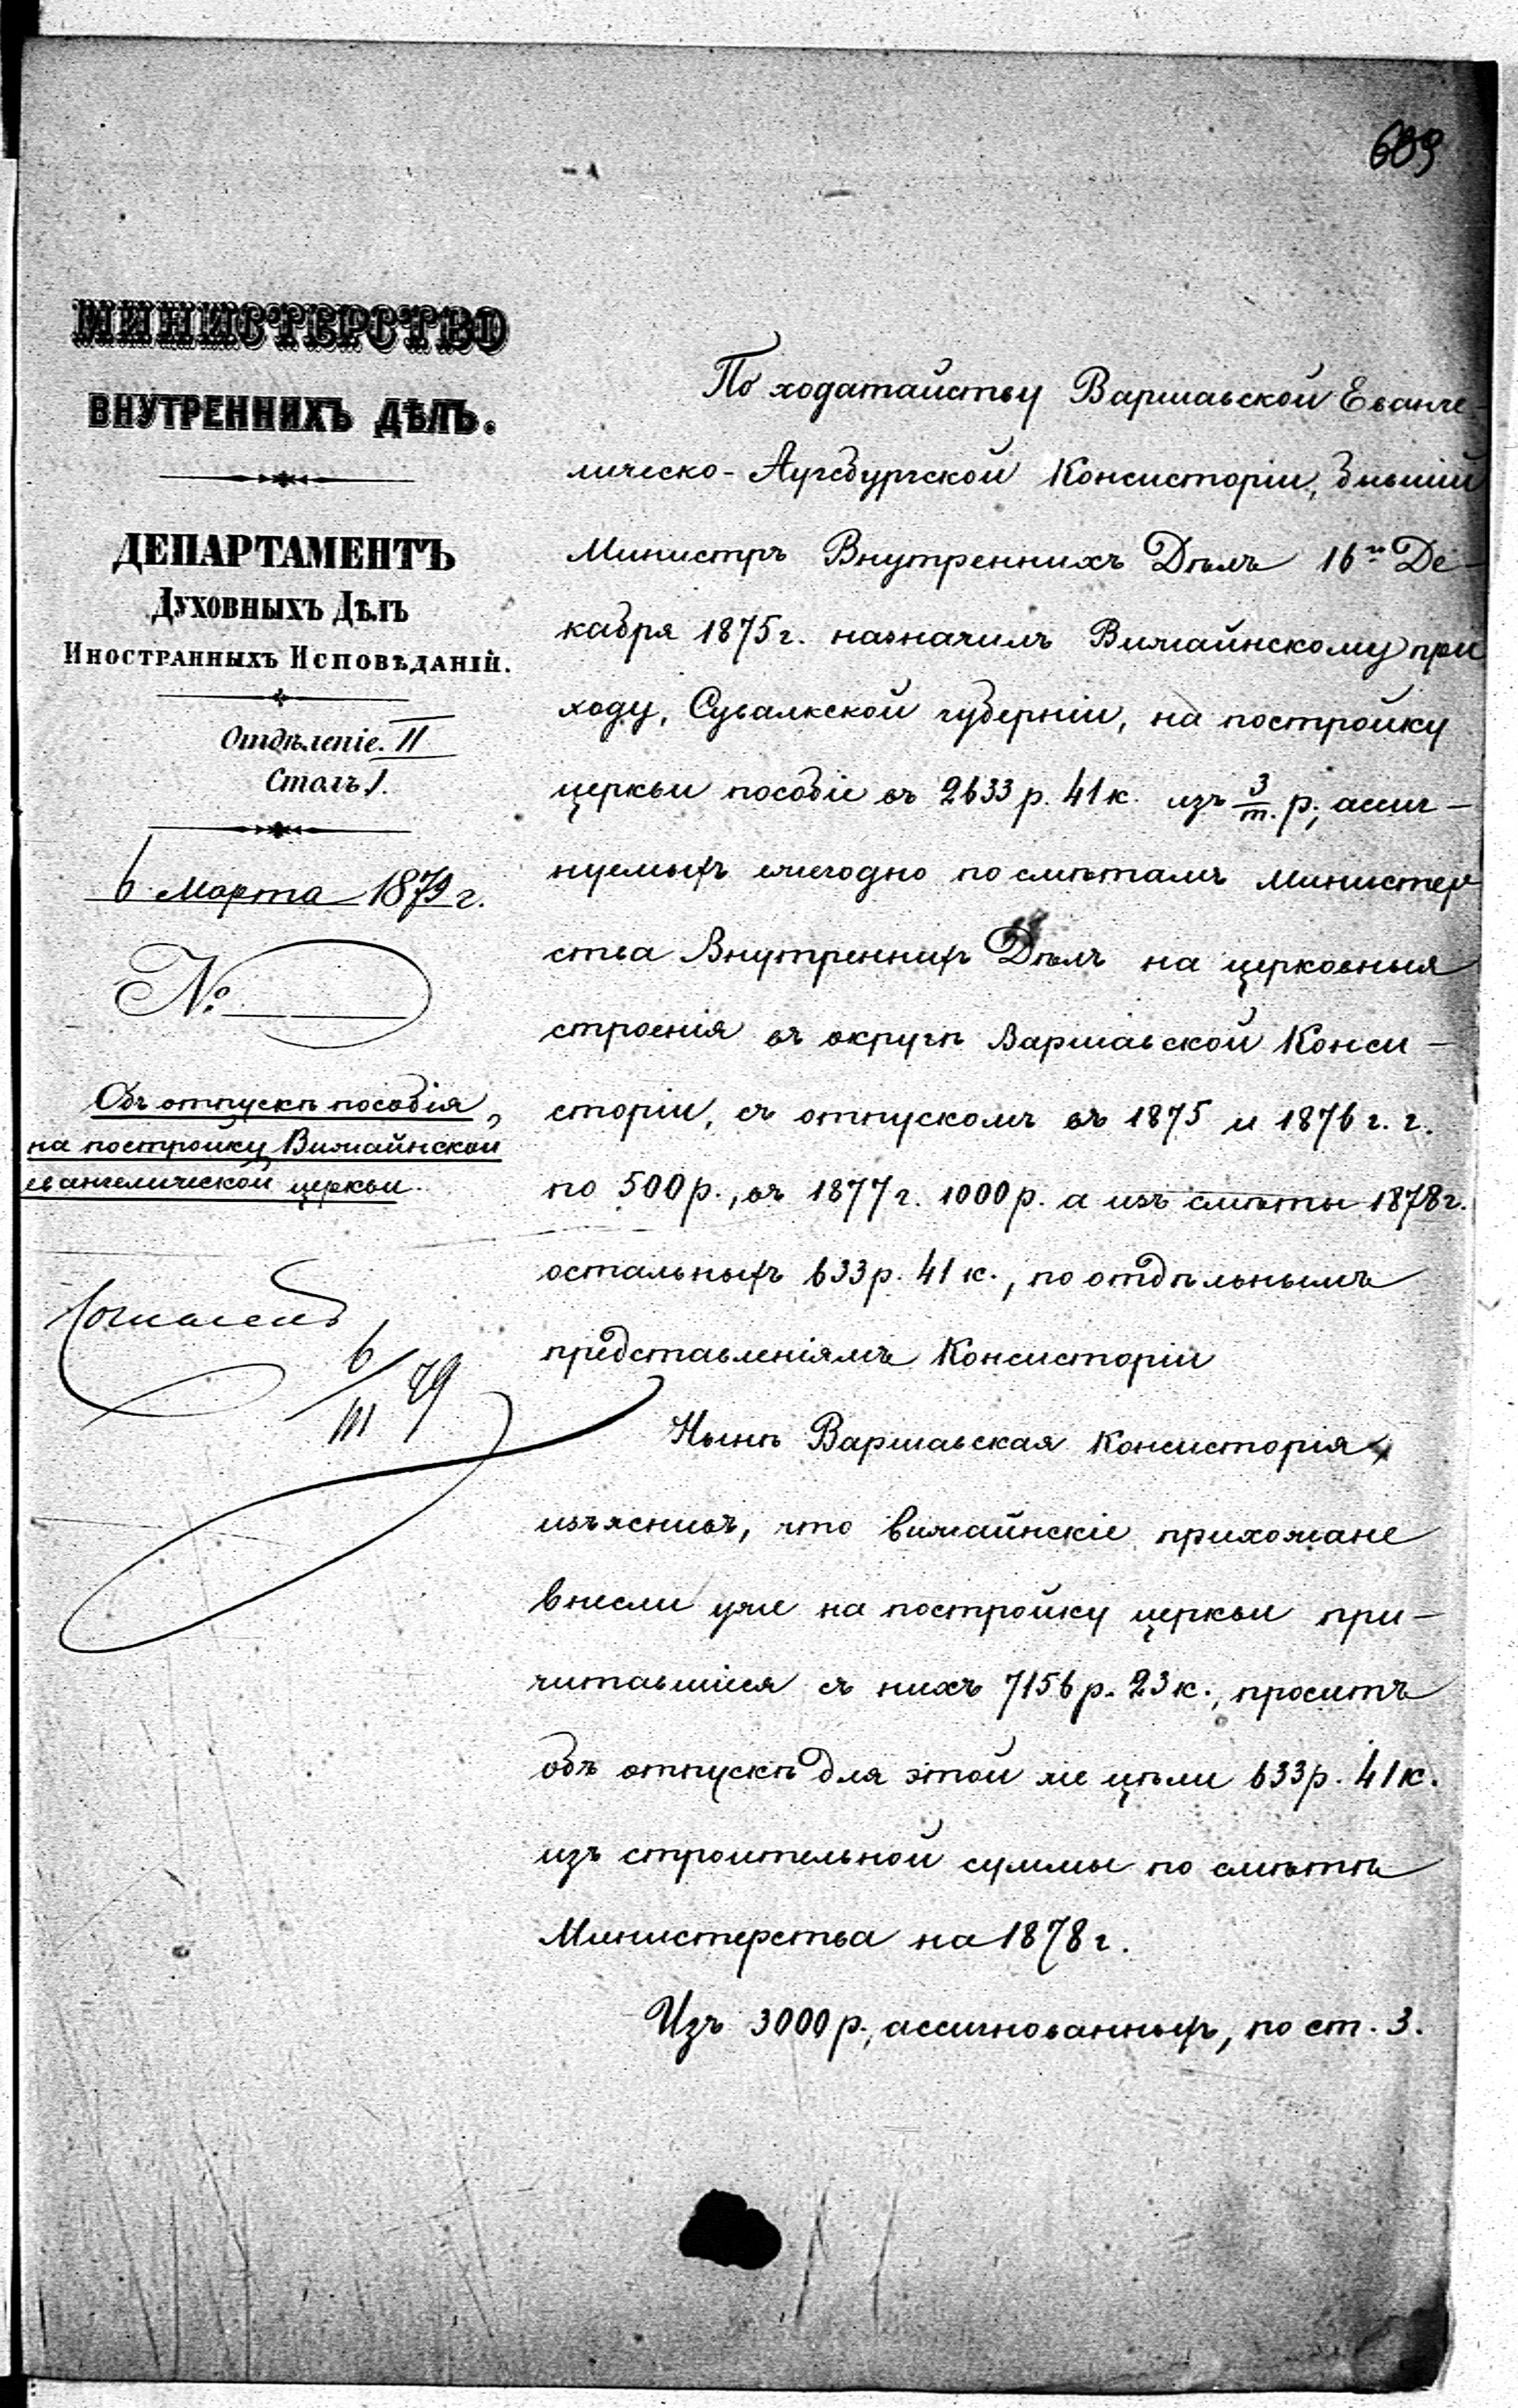 689
МИНИСТЕРСТВО
ВНУТРЕННИХЪ ДѢЛЪ.
ДЕПАРТАМЕНТЪ
ДУХОВНЫХЪ ДѢЛЪ
ИНОСТРАННЫХЪ ИСПОВѢДАНІЙ.
Отдѣленіе. II
Столъ I.
6 Марта 1879 г.
№
Объ отпускѣ пособія
на постройку Вижайнской
евангелической церкви.
Согласенъ
6/III 79
По ходатайству Варшавской Еванге-
лическо-Аугсбургской Консисторіи, бывшій
Министръ Внутреннихъ Дѣлъ 16го Де-
кабря 1875 г. назначилъ Вижайнскому при
ходу, Сувалкской губерніи, на постройку
церкви пособіе въ 2633 р. 41 к. изъ 3/т. р., ассиг-
нуемыхъ ежегодно по смѣтамъ Министер
ства Внутреннихъ Дѣлъ на церковныя
строенія въ округѣ Варшавской Конси-
сторіи, съ отпускомъ въ 1875 и 1876 г. г.
по 500 р., въ 1877 г. 1000 р. а изъ смѣты 1878 г.
остальныхъ 633 р. 41 к., по отдѣльнымъ
представленіямъ Консисторіи
Нынѣ Варшавская Консисторія,
изъяснивъ, что вижайнскіе прихожане
внесли уже на постройку церкви при-
читавшіеся съ нихъ 7156 р. 23 к., проситъ
объ отпускѣ для этой же цѣли 633 р. 41 к.
изъ строительной суммы по смѣтѣ
Министерства на 1878 г.
Изъ 3000 р., ассигнованныхъ, по ст. 3.